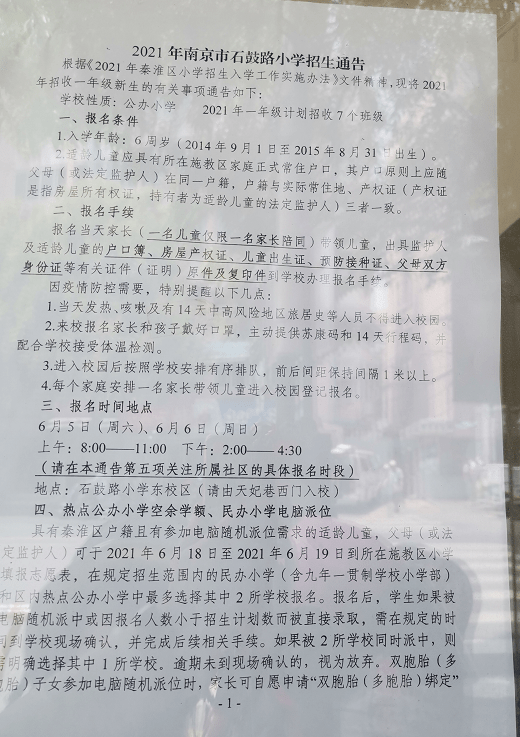 2021 年南京市石鼓路小学招生通告
根据《2021 年秦淮区小学招生入学工作实施办法》文件精神，现将 2021
年招收一年级新生的有关事项通告如下：
学校性质：公办小学 2021 年一年级计划招收 7 个班级
一、报名条件
1.入学年龄：6 周岁（2014 年 9 月 1 日至 2015 年 8 月 31 日出生）。
2.适龄儿童应具有所在施教区家庭正式常住户口，其户口原则上应随
父母（或法定监护人）在同一户籍，户籍与实际常住地、产权证（产权证
是指房屋所有权证，持有者为适龄儿童的法定监护人）三者一致。
二、报名手续
报名当天家长（一名儿童仅限一名家长陪同）带领儿童，出具监护人
及适龄儿童的户口簿、房屋产权证、儿童出生证、预防接种证、父母双方
身份证等有关证件（证明）原件及复印件到学校办理报名手续。
因疫情防控需要，特别提醒以下几点：
1.当天发热、咳嗽及有 14 天中高风险地区旅居史等人员不得进入校园。
2.来校报名家长和孩子戴好口罩，主动提供苏康码和 14 天行程码，并
配合学校接受体温检测。
3.进入校园后按照学校安排有序排队，前后间距保持间隔 1 米以上。
4.每个家庭安排一名家长带领儿童进入校园登记报名。
三、报名时间地点
6 月 5 日（周六）、6 月 6 日（周日）
上午：8:00——11:00 下午：2:00—— 4:30
（请在本通告第五项关注所属社区的具体报名时段）
地点：石鼓路小学东校区（请由天妃巷西门入校）
四、热点公办小学空余学额、民办小学电脑派位
具有秦淮区户籍且有参加电脑随机派位需求的适龄儿童，父母（或法
定监护人）可于 2021 年 6 月 18 日至 2021 年 6 月 19 日到所在施教区小学
填报志愿表，在规定招生范围内的民办小学（含九年一贯制学校小学部）
和区内热点公办小学中最多选择其中 2 所学校报名。报名后，学生如果被
电脑随机派中或因报名人数小于招生计划数而被直接录取，需在规定的时
间到学校现场确认，并完成后续相关手续。如果被 2 所学校同时派中，则
明确选择其中 1 所学校。逾期未到现场确认的，视为放弃。双胞胎（多
胞胎）子女参加电脑随机派位时，家长可自愿申请“双胞胎（多胞胎）绑定”
- 1 -